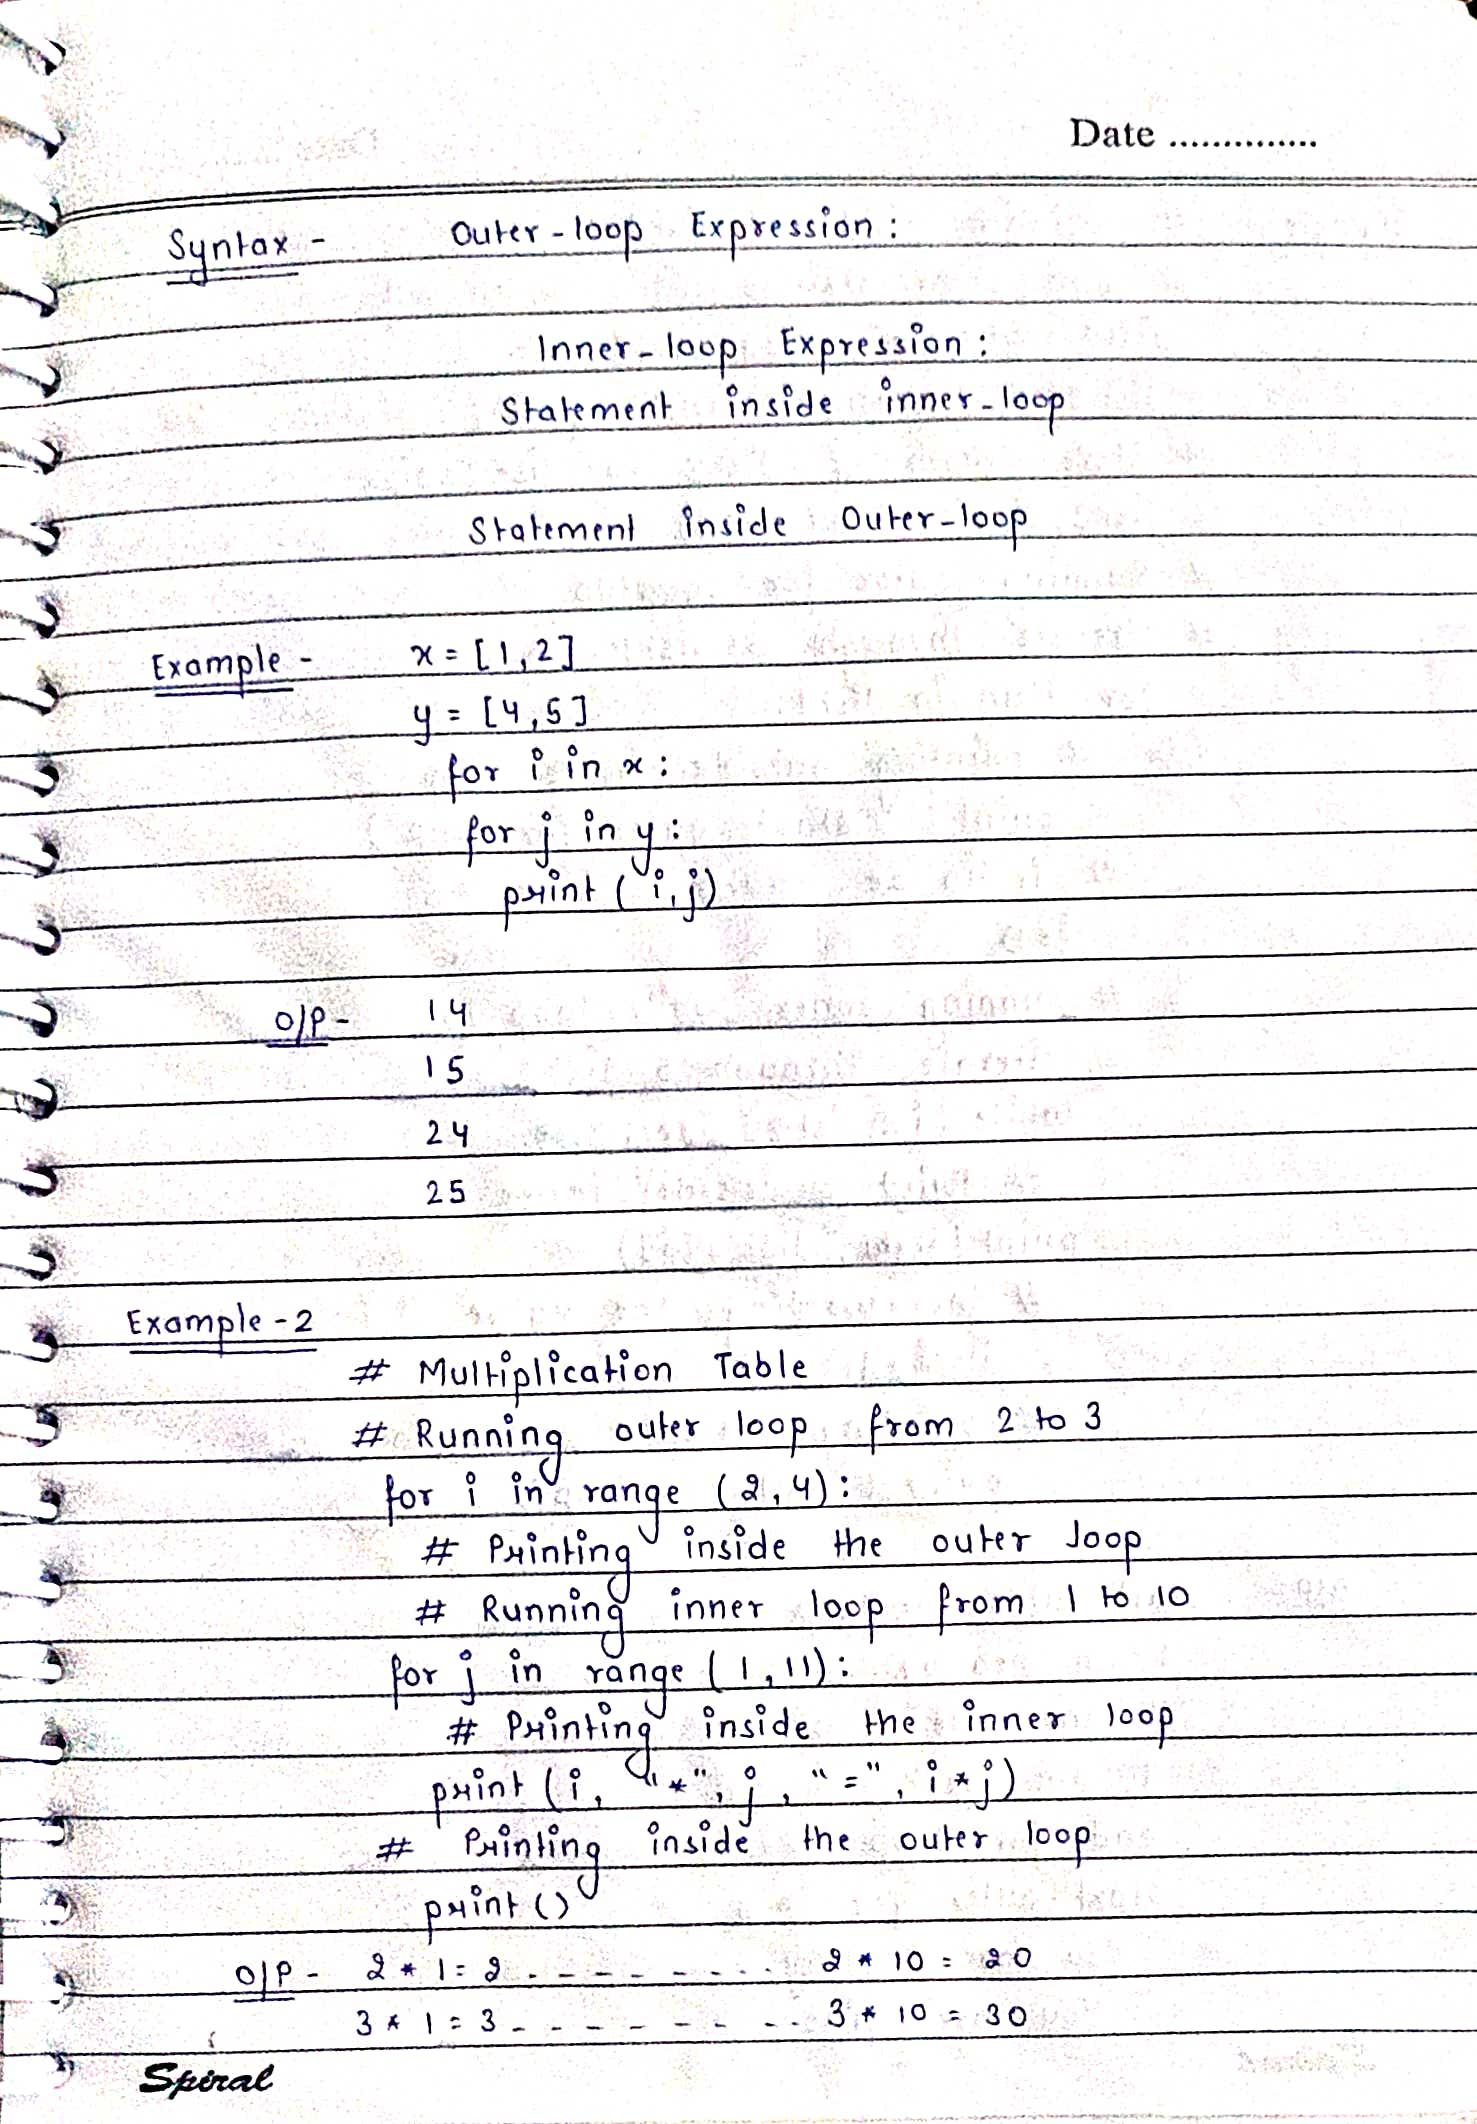 Date ..............
Syntax - Outer-loop Expression :
Inner-loop Expression :
Statement inside inner-loop
Statement inside Outer-loop
Example - x = [1,2]
y = [4,5]
for i in x :
for j in y :
print ( i,j)
O/P - 14
15
24
25
Example -2
# Multiplication Table
# Running outer loop from 2 to 3
for i in range (2,4) :
# Printing inside the outer loop
# Running inner loop from 1 to 10
for j in range (1,11) :
# Printing inside the inner loop
print (i, "*", j, "=", i*j)
# Printing inside the outer loop
print ()
O/P - 2 * 1 = 2 - - - - - - - - 2 * 10 = 20
3 * 1 = 3 - - - - - - - - - 3 * 10 = 30
Spiral